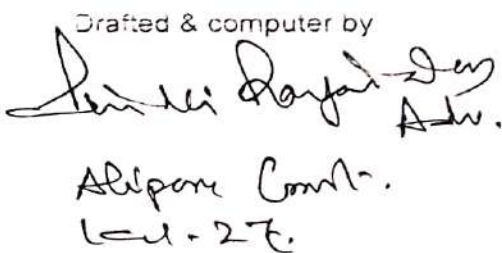 Drafted & computer by
Ranjan Dey
Adv.
Alipore Court.
Kol-27.